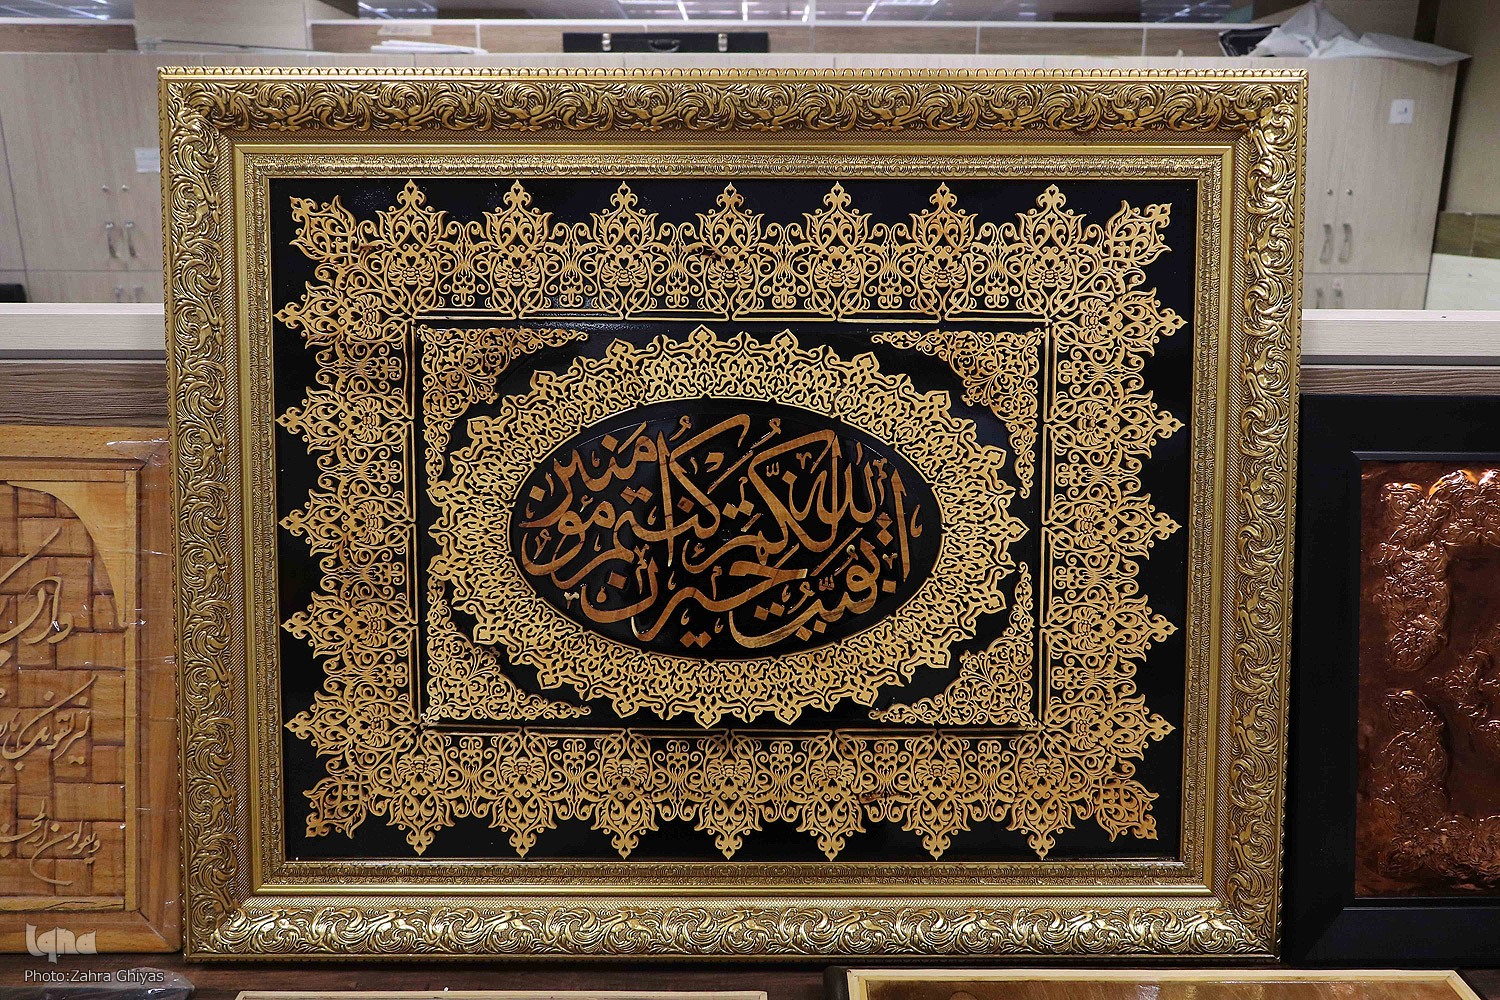 بقیت الله خیر لکم ان کنتم مؤمنین
iqna
Photo:Zahra Ghiyas